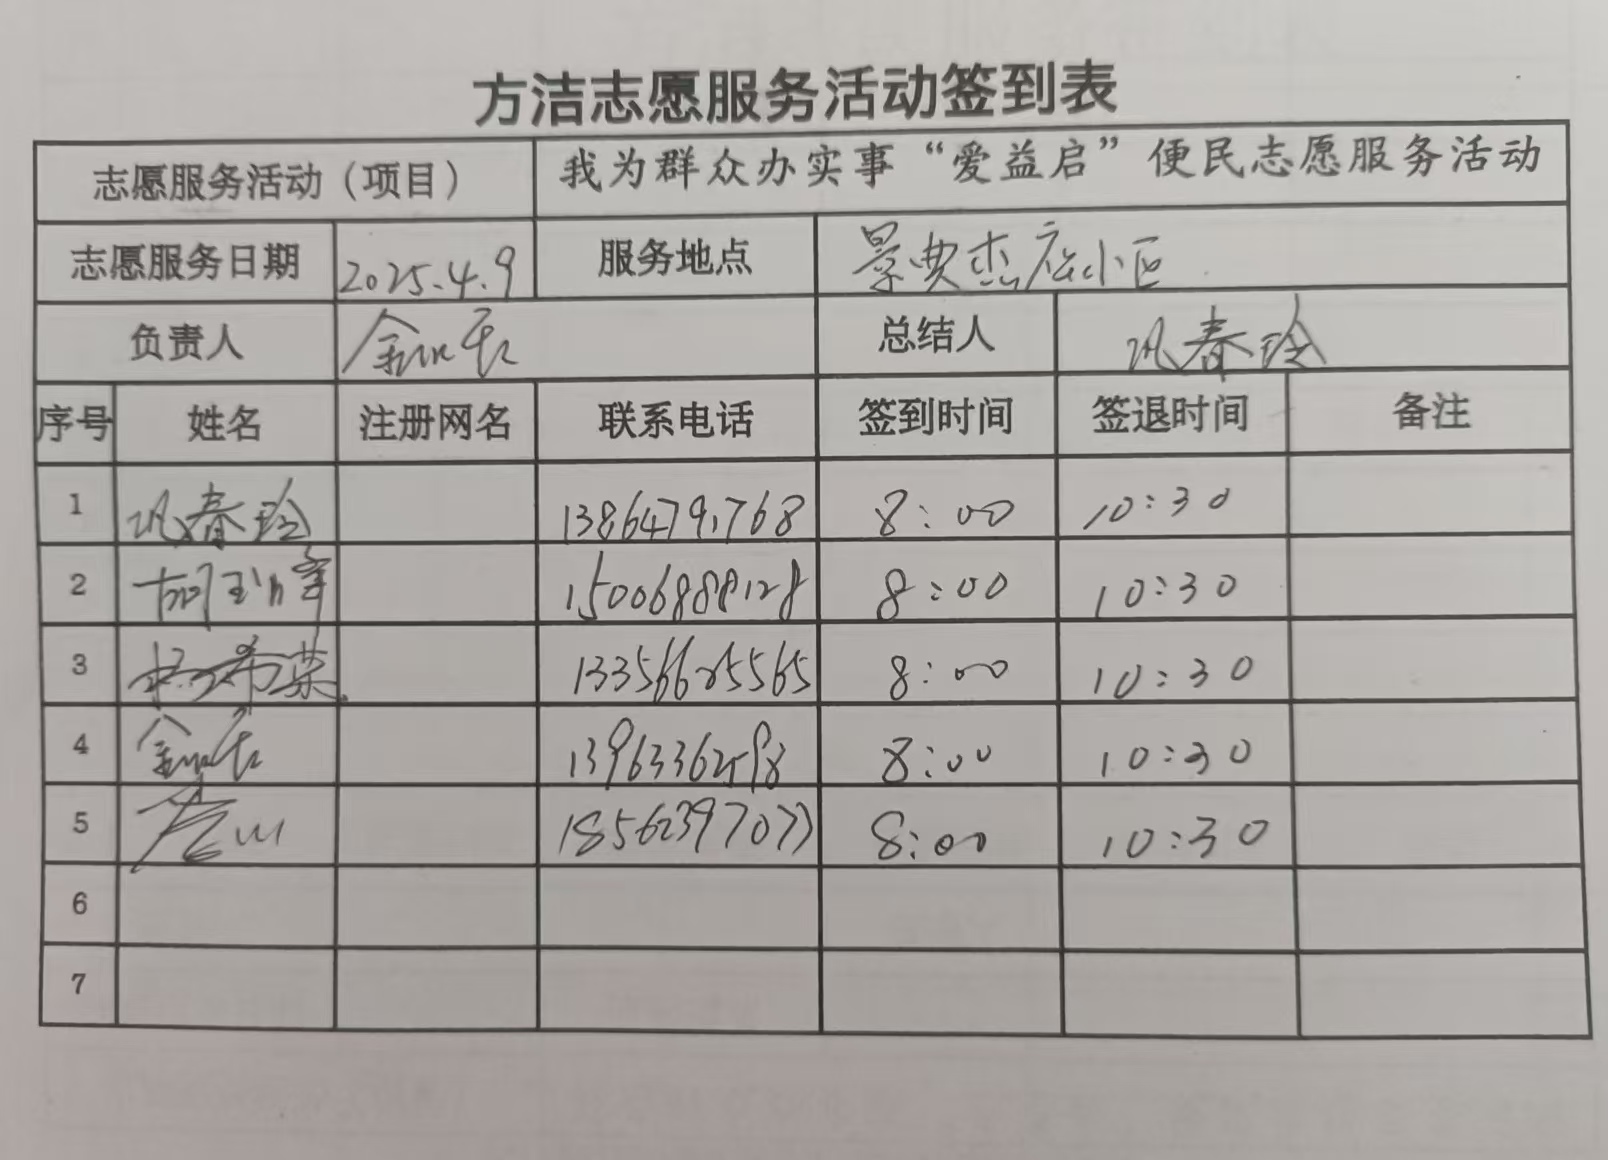 方洁志愿服务活动签到表
志愿服务活动（项目） 我为群众办实事“爱益启”便民志愿服务活动
志愿服务日期 2025.4.9 服务地点 景典杰座小区
负责人 总结人 巩春玲
序号 姓名 注册网名 联系电话 签到时间 签退时间 备注
1 巩春玲 13864791768 8:00 10:30
2 15006888128 8:00 10:30
3 13356625565 8:00 10:30
4 13963362598 8:00 10:30
5 18562397077 8:00 10:30
6
7